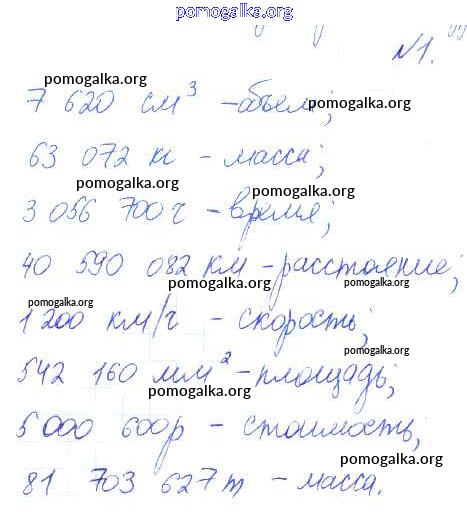 pomogalka.org
№1.
pomogalka.org
pomogalka.org
7 620 см³ - объем;
63 072 кг - масса;
pomogalka.org
pomogalka.org
3 056 700 ч - время;
40 590 082 км - расстояние;
pomogalka.org
pomogalka.org
pomogalka.org
1 200 км/ч - скорость;
pomogalka.org
542 160 мм² - площадь;
pomogalka.org
5 000 600р - стоимость;
pomogalka.org
81 703 627 т - масса.